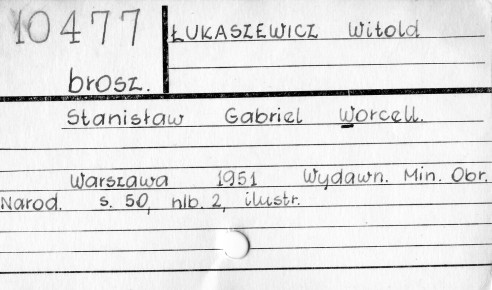 10477
ŁUKASZEWICZ Witold
brosz.
Stanisław Gabriel Worcell.
Warszawa 1951 Wydawn. Min. Obr.
Narod. s. 50, nlb. 2, ilustr.